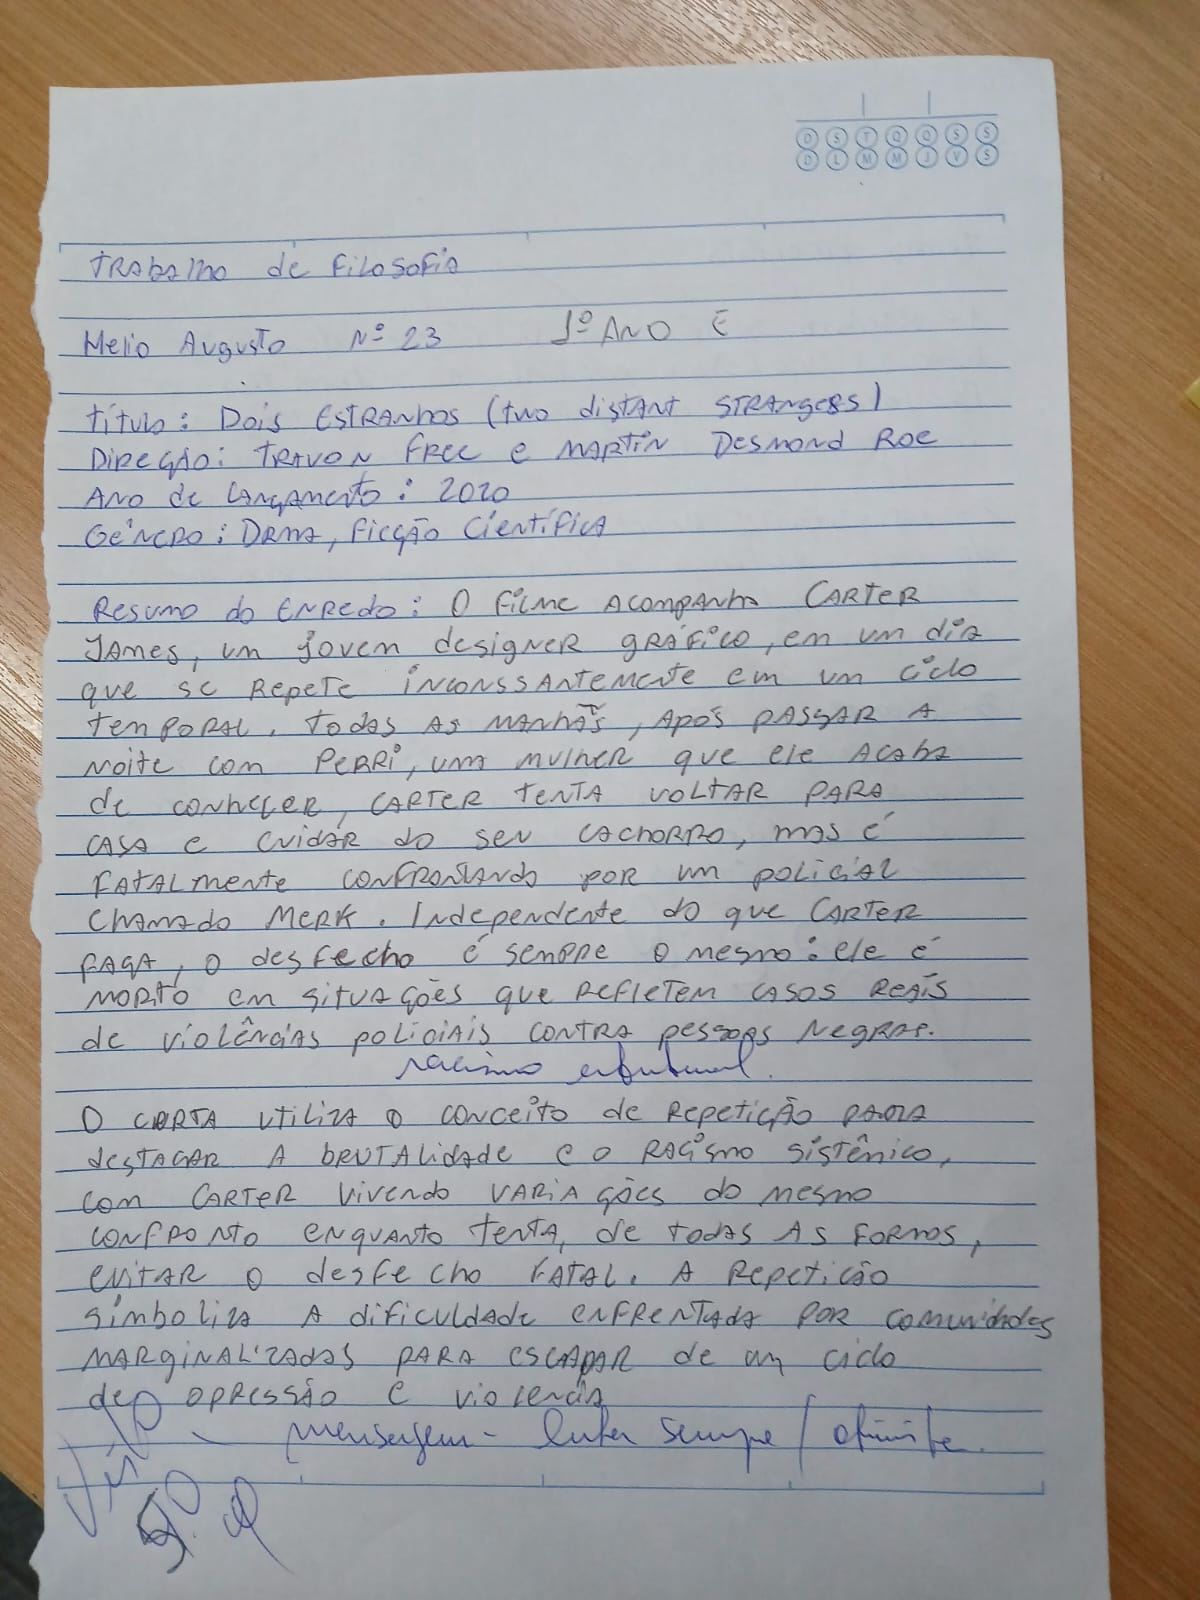 D S T Q Q S S
D L M M J V S
Trabalho de Filosofia
Melio Augusto Nº 23 1º Ano E
Título: Dois Estranhos (two distant strangers)
Direção: Travon Free e Martin Desmond Roe
Ano de lançamento: 2020
Gênero: Drma, Ficção Científica
Resumo do Enredo: O filme acompanha Carter
James, um jovem designer gráfico, em um dia
que se repete inconssantemente em um ciclo
temporal. Todas as manhãs, após passar a
noite com Perri, uma mulher que ele acaba
de conhecer, Carter tenta voltar para
casa e cuidar do seu cachorro, mas é
fatalmente confrontando por um policial
chamado Merk. Independente do que Carter
faça, o desfecho é sempre o mesmo: ele é
morto em situações que refletem casos reais
de violências policiais contra pessoas negras.
racismo estrutural.
O curta utiliza o conceito de repetição para
destacar a brutalidade e o racismo sistênico,
com Carter vivendo variações do mesmo
confronto enquanto tenta, de todas as formas,
evitar o desfecho fatal. A repetição
simboliza a dificuldade enfrentada por comunidades
marginalizadas para escapar de um ciclo
de opressão e violencia
Visto - mensagem - lutar sempre /